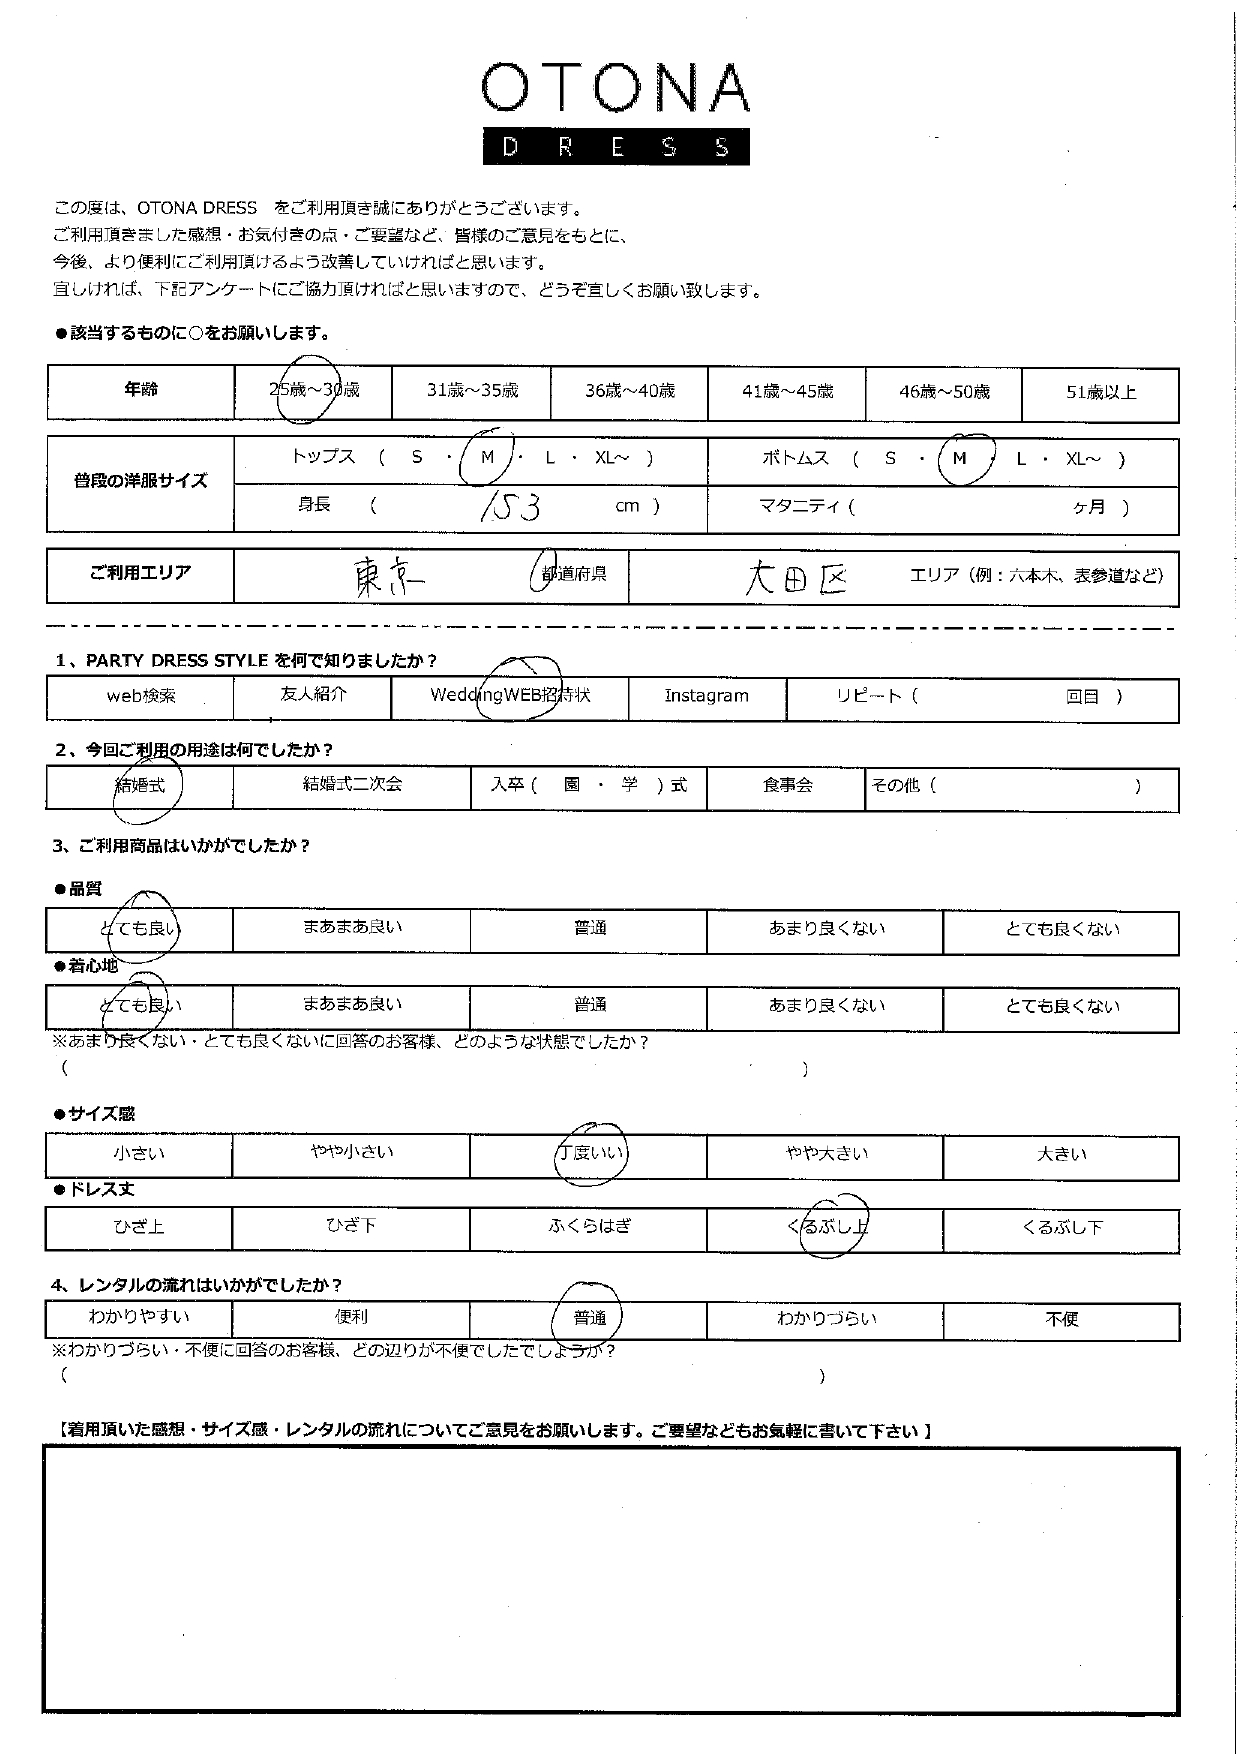 OTONA
DRESS
この度は、OTONA DRESS　をご利用頂き誠にありがとうございます。
ご利用頂きました感想・お気付きの点・ご要望など、皆様のご意見をもとに、
今後、より便利にご利用頂けるよう改善していければと思います。
宜しければ、下記アンケートにご協力頂ければと思いますので、どうぞ宜しくお願い致します。
●該当するものに○をお願いします。
年齢 25歳～30歳 31歳～35歳 36歳～40歳 41歳～45歳 46歳～50歳 51歳以上
普段の洋服サイズ
トップス （ S ・ M ・ L ・ XL～ ） ボトムス （ S ・ M ・ L ・ XL～ ）
身長 （ 153 cm ） マタニティ（ ヶ月 ）
ご利用エリア 東京 都道府県 大田区 エリア（例：六本木、表参道など）
1、PARTY DRESS STYLE を何で知りましたか？
web検索 友人紹介 WeddingWEB招待状 Instagram リピート（ 回目 ）
2、今回ご利用の用途は何でしたか？
結婚式 結婚式二次会 入卒（ 園 ・ 学 ）式 食事会 その他（ ）
3、ご利用商品はいかがでしたか？
●品質
とても良い まあまあ良い 普通 あまり良くない とても良くない
●着心地
とても良い まあまあ良い 普通 あまり良くない とても良くない
※あまり良くない・とても良くないに回答のお客様、どのような状態でしたか？
（ ）
●サイズ感
小さい やや小さい 丁度いい やや大きい 大きい
●ドレス丈
ひざ上 ひざ下 ふくらはぎ くるぶし上 くるぶし下
4、レンタルの流れはいかがでしたか？
わかりやすい 便利 普通 わかりづらい 不便
※わかりづらい・不便に回答のお客様、どの辺りが不便でしたでしょうか？
（ ）
【着用頂いた感想・サイズ感・レンタルの流れについてご意見をお願いします。ご要望などもお気軽に書いて下さい 】